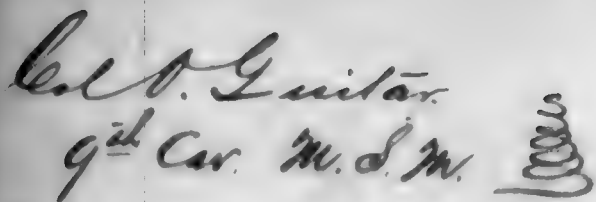 Col O. Guitar.
9th Cav. M.S.M.